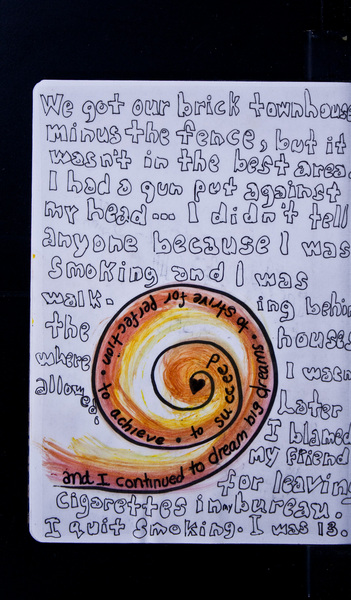 We got our brick townhouse
minus the fence, but it
wasn't in the best area.
I had a gun put against
my head... I didn't tell
anyone because I was
smoking and I was
walk- ing behin
the houses
where I wasn
allowed.
Later
I blamed
my friend
for leaving
cigarettes in my bureau.
I quit smoking. I was 13.
and I continued to dream big dreams. to strive for perfection. to achieve. to succeed